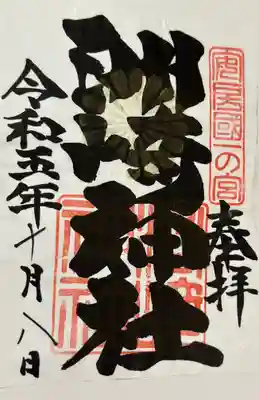 安房國一の宮
奉拝
洲崎神社
令和五年十月八日